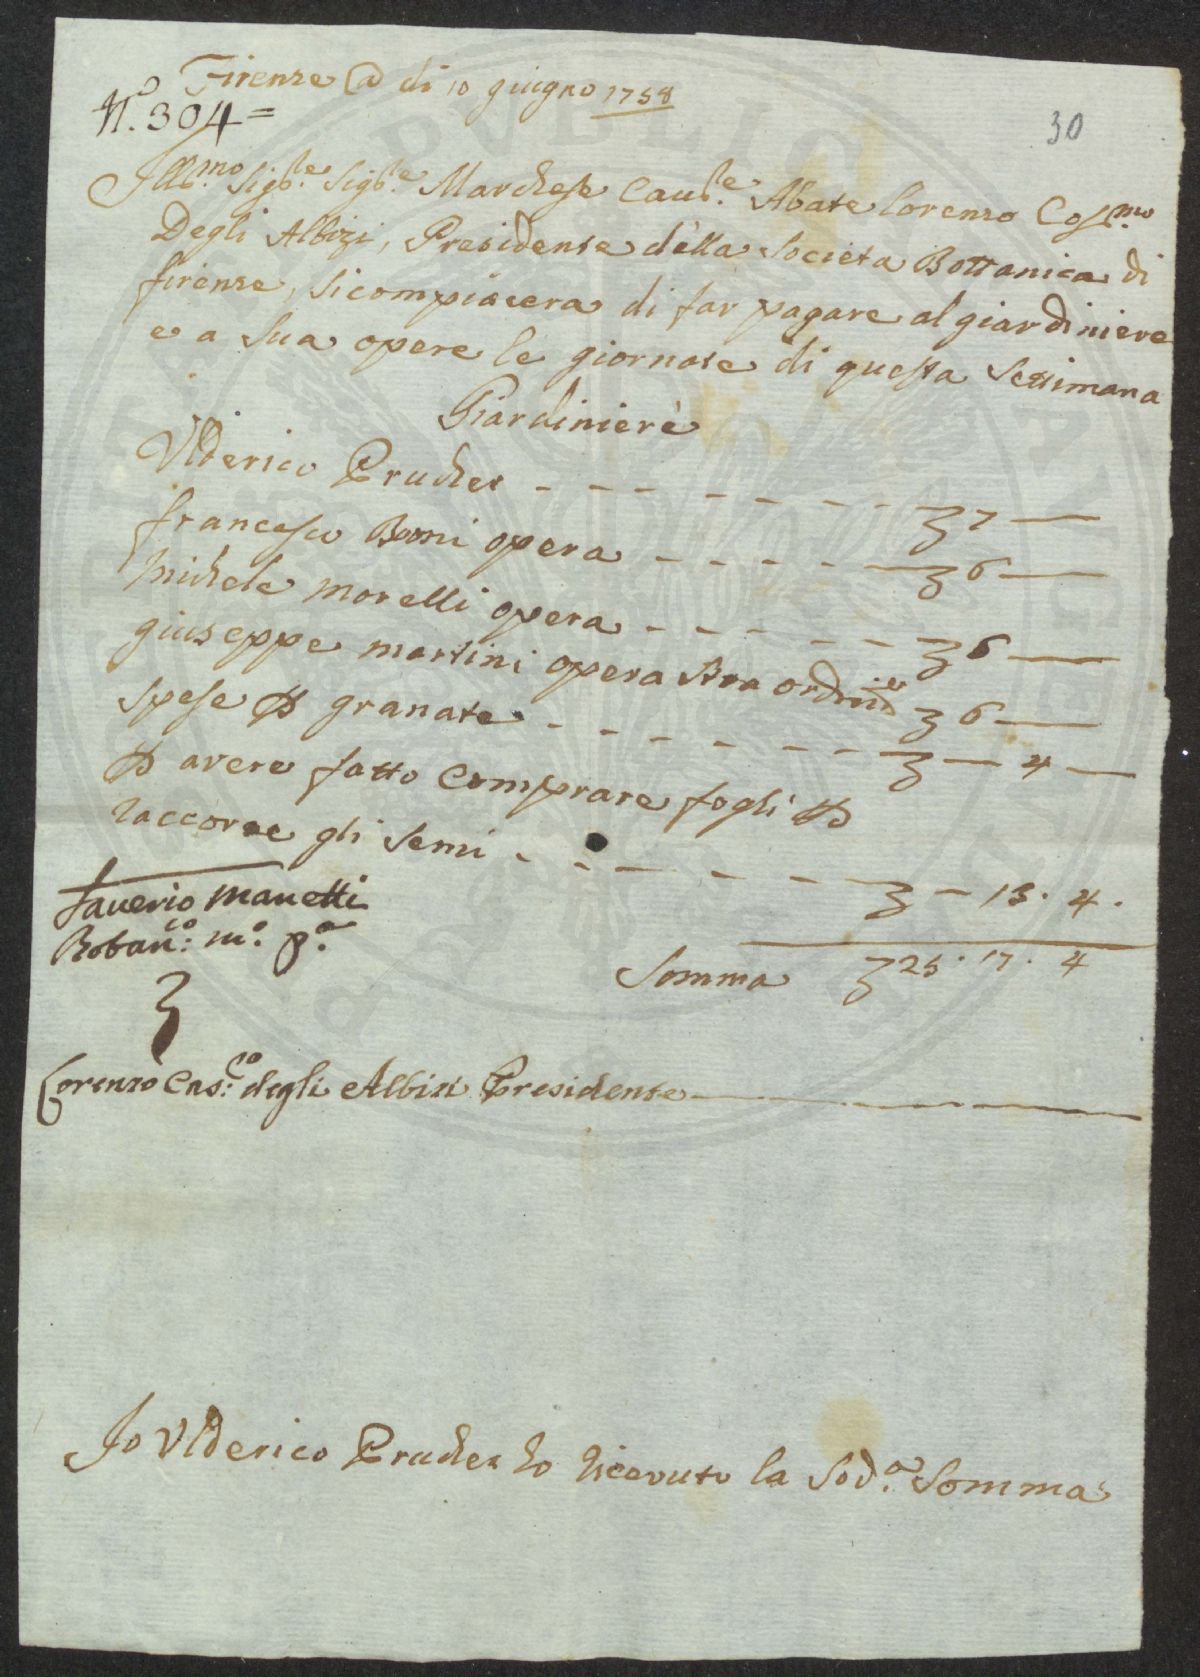 Firenze @ di 10 giugno 1758
N.º 304 =
30
Ill.mo Sigr.e Sigr.e Marchese Cau.re Abate Lorenzo Cos.mo
Degli Albizi, Presidente della Societa Bottanica di
firenze, si compiacera di far pagare al giardiniere
e a sua opere le giornate di questa Settimana
Giardiniere
Ulderico Prucher - - - - - - - - - 7 —
francesco Bonni opera - - - - - 6 —
Michele morelli opera - - - - - - 6 —
giuseppe martini opera stra ordin 6 —
spese p granate - - - - - - - - — 4 —
p avere fatto Comprare fogli p
raccorre gli semi - - - - - - - — 13 . 4 .
Saverio Manetti
Botan.co m.º p.ª
Somma 25 . 17 . 4
Lorenzo Cos.mo degli Albizi Presidente
Io Ulderico Prucher ho ricevuto la Sod.ª Somma